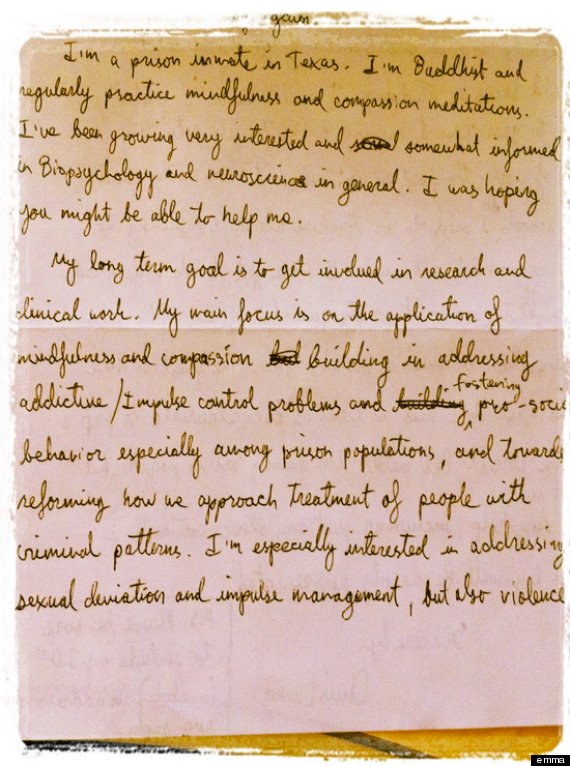 again
I'm a prison inmate in Texas. I'm Buddhist and
regularly practice mindfulness and compassion meditations.
I've been growing very interested and somewhat informed
in Biopsychology and neuroscience in general. I was hoping
you might be able to help me.
My long term goal is to get involved in research and
clinical work. My main focus is on the application of
mindfulness and compassion building in addressing
addictive/Impulse control problems and building Fostering pro-socia
behavior especially among prison populations, and towards
reforming how we approach treatment of people with
criminal patterns. I'm especially interested in addressing
sexual deviation and impulse management, but also violence
emma